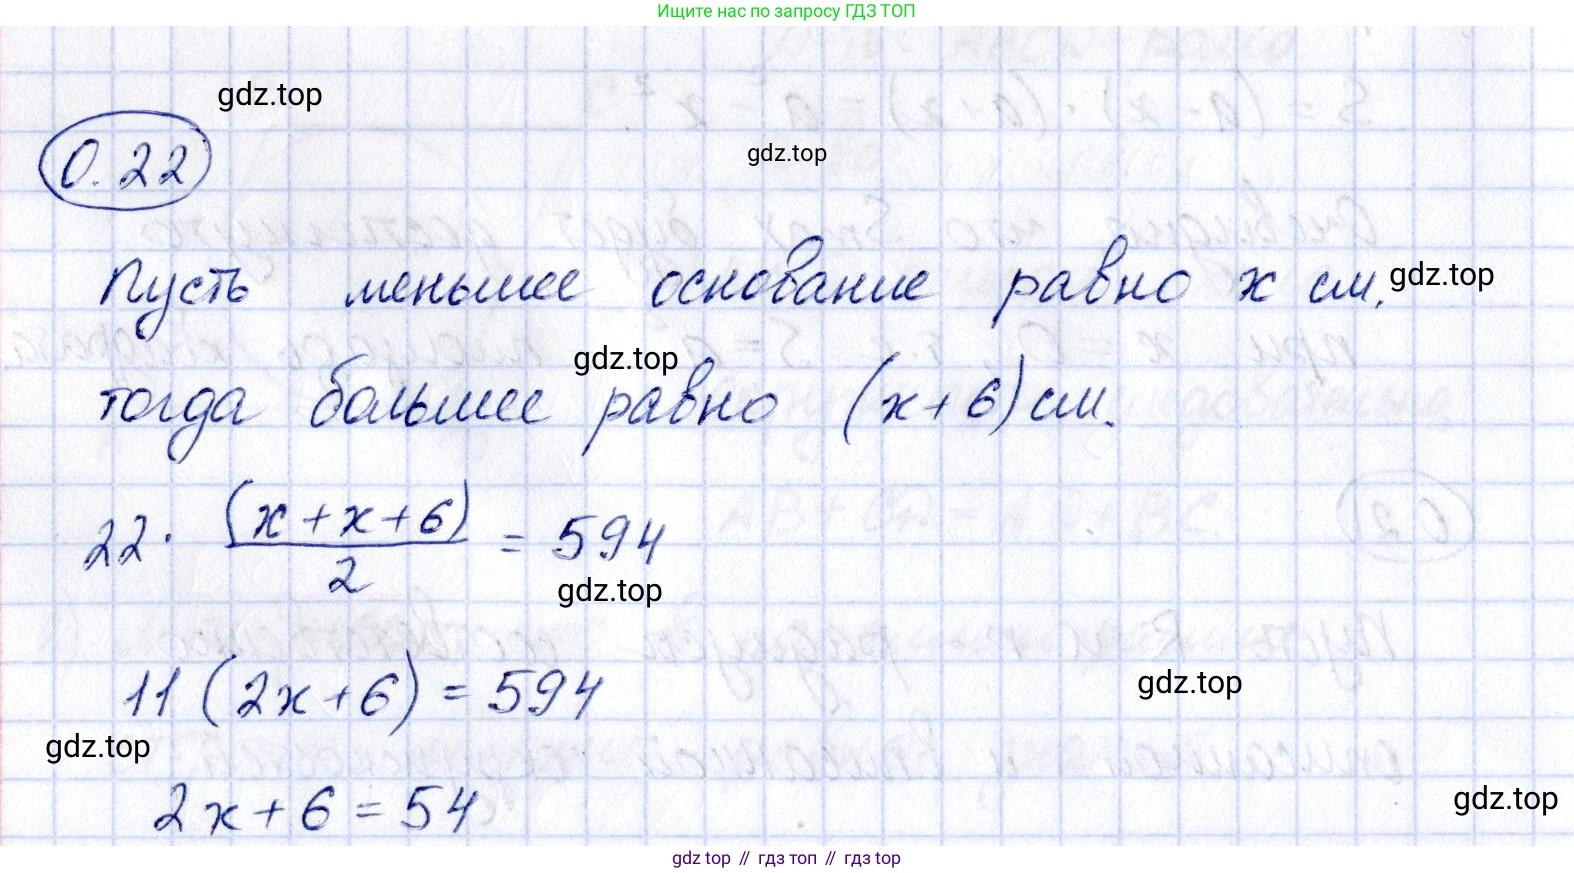 Ищите нас по запросу ГДЗ ТОП
gdz.top
0.22
gdz.top
Пусть меньшее основание равно x см,
gdz.top
gdz.top
тогда большее равно (x+6) см.
22 · (x+x+6)/2 = 594
gdz.top
11 (2x+6) = 594
gdz.top
gdz.top
2x+6 = 54
gdz.top
gdz top // гдз топ // гдз top